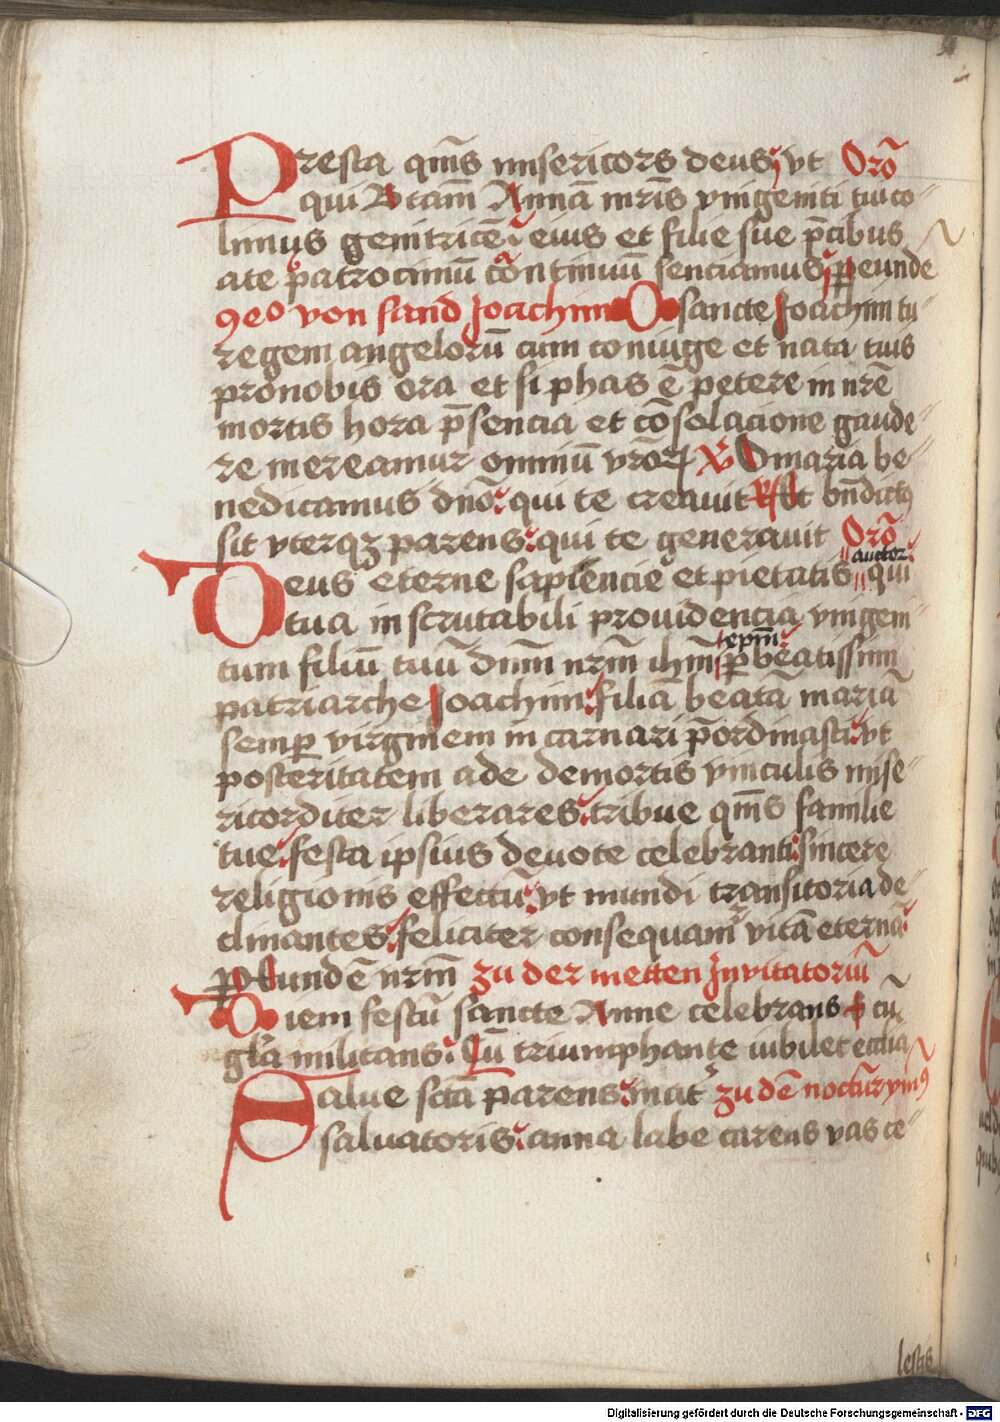 Presta qms misericors deus vt Oro
qui Btam Annā mr̄is vnigeniti tui co
limus genitricē eius et filie sue p̄cibus
ate patrociniū continuū senciamus p̱ eunde
9eo von sand Joachim O sancte Joachim tu
regem angelorū cum coniuge et nata tuis
pronobis ora et si phas ē petere in nr̄e
mortis hora p̄sencia et cōsolacione gaude
re mereamur omniū vr̄oꝝ V O maria be
nedicamus dn̄o qui te creauit bn̄dictꝰ
sit vterqꝫ parens qui te generauit Oro
Deus eterne sapiencie et pietatis auctor qui
tua inscrutabili prouidencia vnigeni
tum filiū tuū dn̄m nr̄m ihm̄ xpm̄ p̱ beatissimi
patriarche Joachim filiā beatā mariā
semꝑ virginem incarnari p̄ordinasti vt
posteritatem ade demortis vinculis mise
ricorditer liberares tribue qm̄s familie
tue festa ipsius deuote celebranti sincere
religionis effectū vt mundi transitoria de
clinantes feliciter consequamr vitā eternā
P eundē nr̄m zu der metten Jnvitatoriū
Diem festū sancte Anne celebrans cū
gl̄a militans Cū triumphante iubilet ecclia
Salue sctā parens mat zu dē nocturn ymꝰ
saluatoris anna labe carens vas ce
lestis
Digitalisierung gefördert durch die Deutsche Forschungsgemeinschaft - DFG